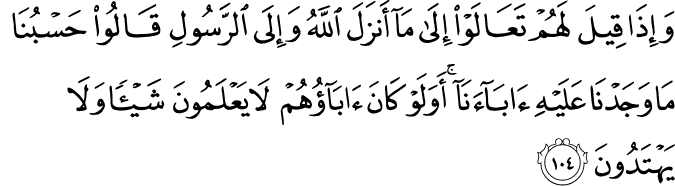 وَإِذَا قِيلَ لَهُمْ تَعَالَوْا۟ إِلَىٰ مَآ أَنزَلَ ٱللَّهُ وَإِلَى ٱلرَّسُولِ قَالُوا۟ حَسْبُنَا
مَا وَجَدْنَا عَلَيْهِ ءَابَآءَنَآ ۚ أَوَلَوْ كَانَ ءَابَآؤُهُمْ لَا يَعْلَمُونَ شَيْـًٔا وَلَا
يَهْتَدُونَ ١٠٤